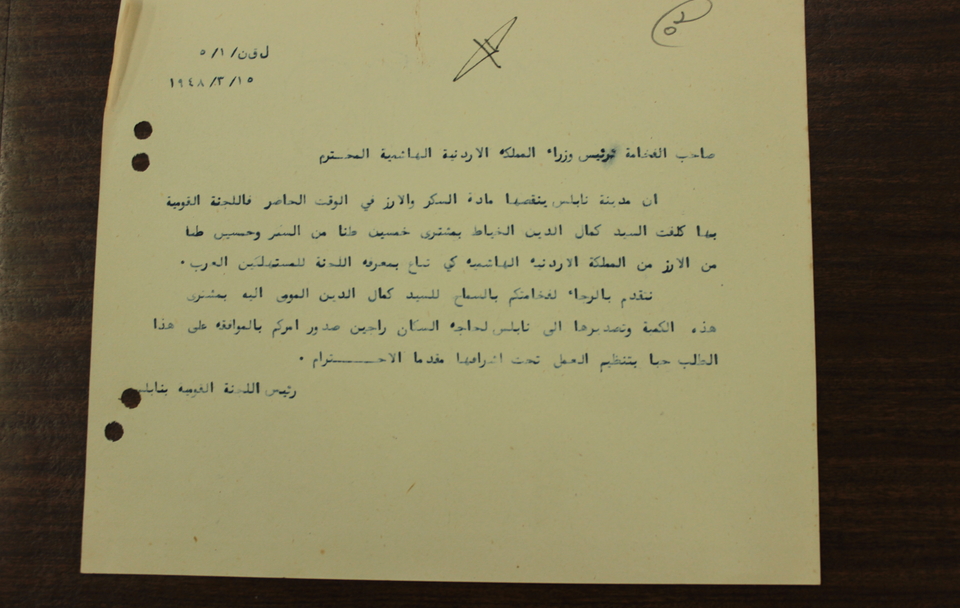 ٥٢
ل ق ن/ ١/ ٥
١٥/ ٣/ ١٩٤٨
صاحب الفخامة رئيس وزراء المملكه الاردنية الهاشمية المحـترم
ان مدينة نابلس ينقصها مادة السكر والارز في الوقت الحاضر فاللجنة القومية
بها كلفت السيد كمال الدين الخياط بمشترى خمسين طنا من السكر وخمسين طنا
من الارز من المملكة الاردنيه الهاشميه كي تباع بمعرفه اللجنة للمستهلكين العرب .
نتقدم بالرجاء لفخامتكم بالسماح للسيد كمال الدين المومى اليه بمشترى
هذه الكمية وتصديرها الى نابلس لحاجه السكان راجين صدور امركم بالموافقه على هذا
الطلب حبا بتنظيم العمل تحت اشرافها مقدما الاحــــــــترام .
رئيس اللجنة القومية بنابلس